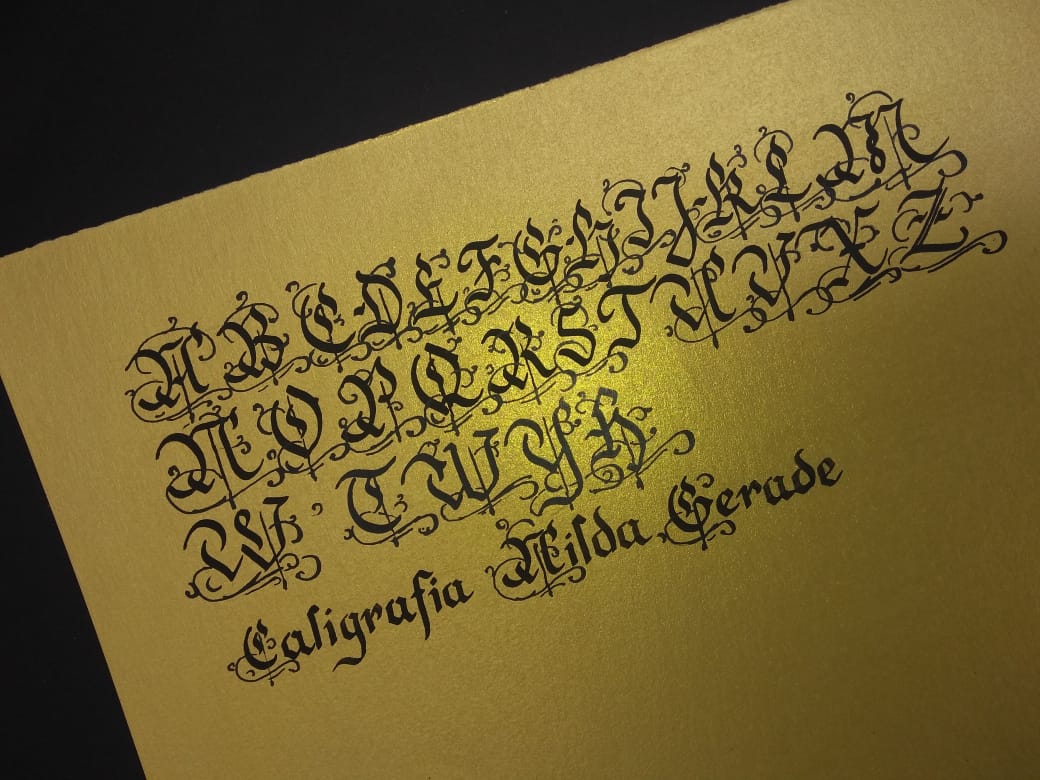 A B C D E F G H I J K L M
N O P Q R S T U V X Z
W · T W Y H
Caligrafia Nilda Gerade